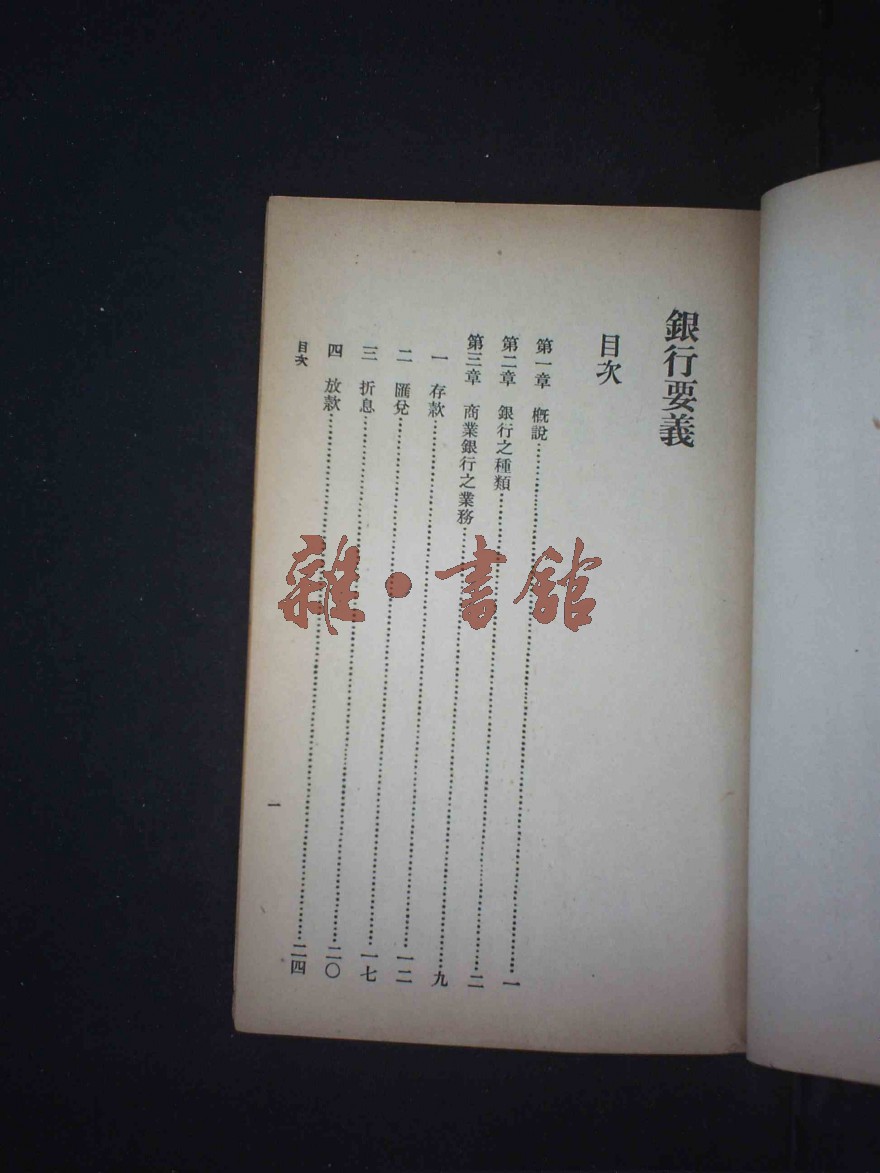 銀行要義
目次
第一章 槪說…………一
第二章 銀行之種類…………二
第三章 商業銀行之業務…………九
一 存款…………一二
二 匯兌…………一七
三 折息…………二〇
四 放款…………二四
目次
一
雜•書館